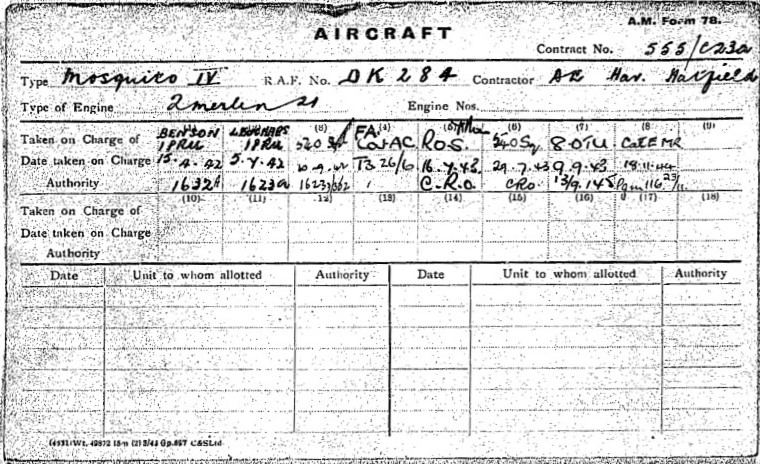 A.M. Form 78.
AIRCRAFT
Contract No. 555/C23a
Type Mosquito IV R.A.F. No. DK 284 Contractor Hav. Hatfield
Type of Engine 2 merlin 21 Engine Nos.
(3) (4) (6) (7) (8) (9)
Taken on Charge of BENSON 1 PRU LEUCHARS 1 PRU 540 FA Cat AC R.O.S. 540 Sq. 8 OTU Cat E MR
Date taken on Charge 15.4.42 5.7.42 T3 26/6 16.7.43. 29.7.43 9.9.43 18.11.44
Authority 1632A 1623a C.R.O. CRO.
(10) (11) (12) (13) (14) (15) (16) (17) (18)
Taken on Charge of
Date taken on Charge
Authority
Date Unit to whom allotted Authority Date Unit to whom allotted Authority
C&S Ltd